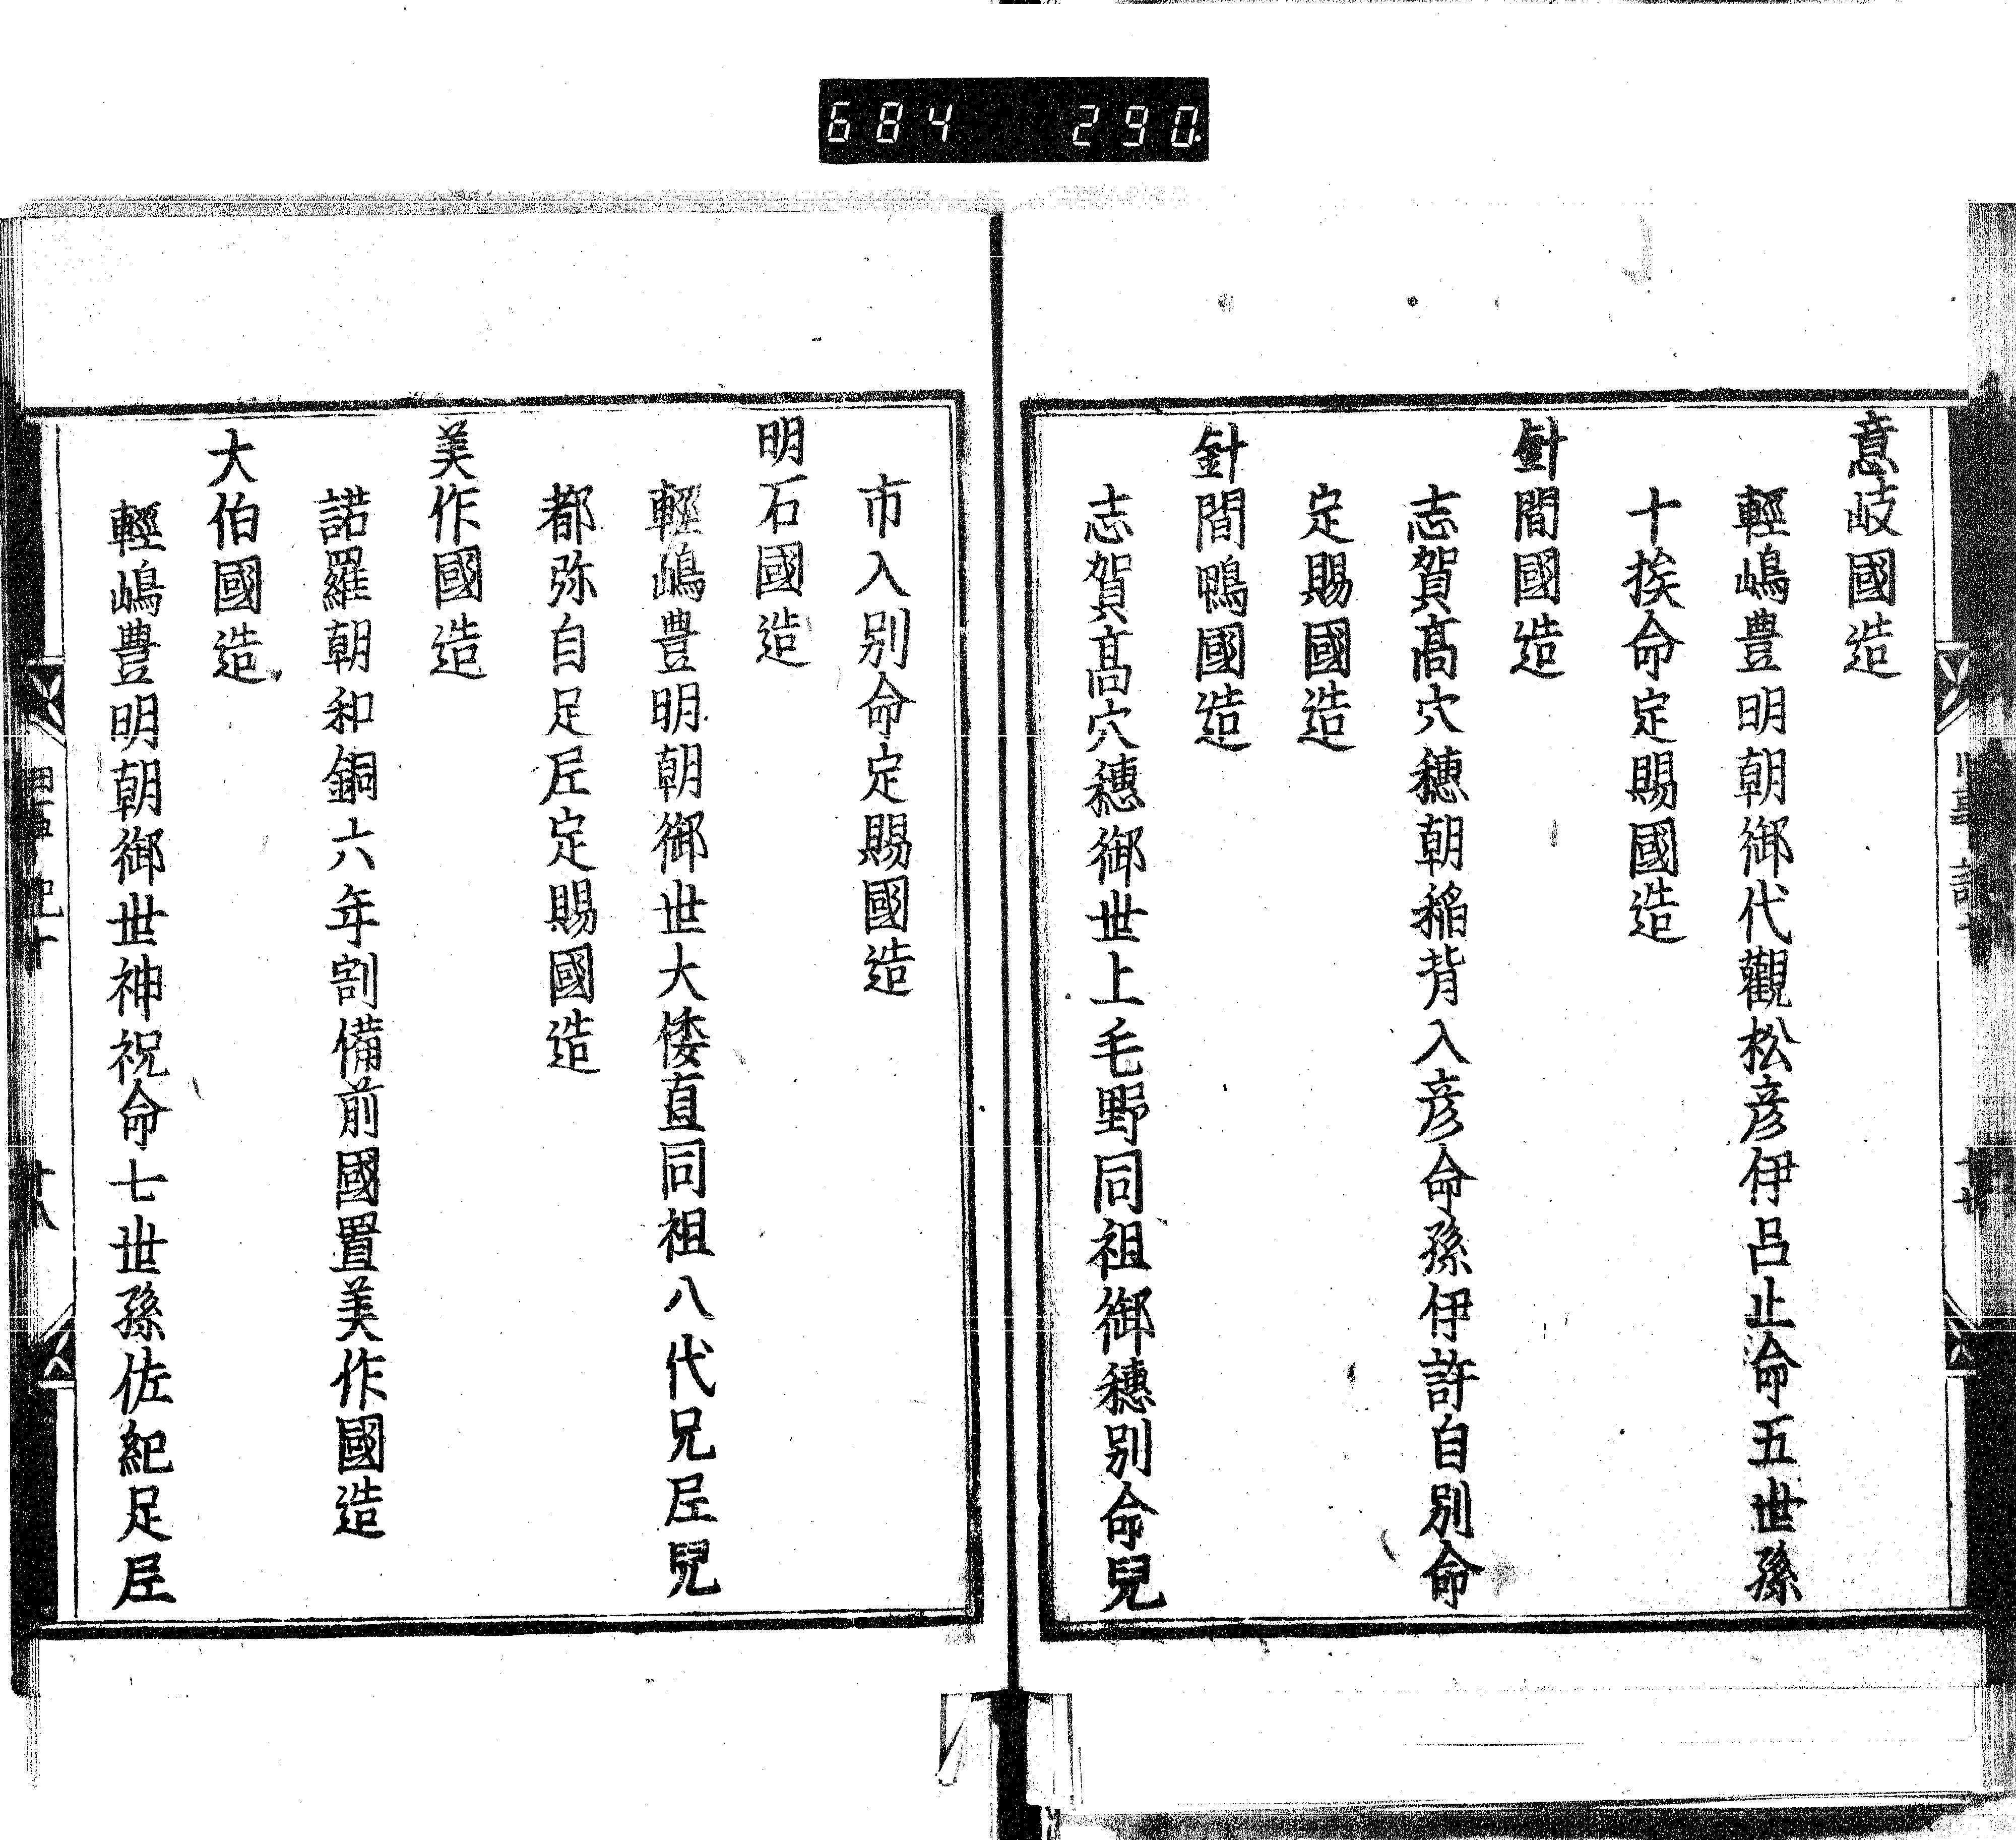 684 290
意岐國造
輕嶋豊明朝御代觀松彦伊呂止命五世孫
十挨命定賜國造
針間國造
志賀髙穴穗朝稲背入彦命孫伊許自別命
定賜國造
針間鴨國造
志賀髙穴穗御世上毛野同祖御穗別命兒
市入別命定賜國造
明石國造
輕嶋豊明朝御世大倭直同祖八代兄𡱖兒
都弥自足𡱖定賜國造
美作國造
諾羅朝和銅六年割備前國置美作國造
大伯國造
輕嶋豊明朝御世神祝命七世孫佐紀足𡱖